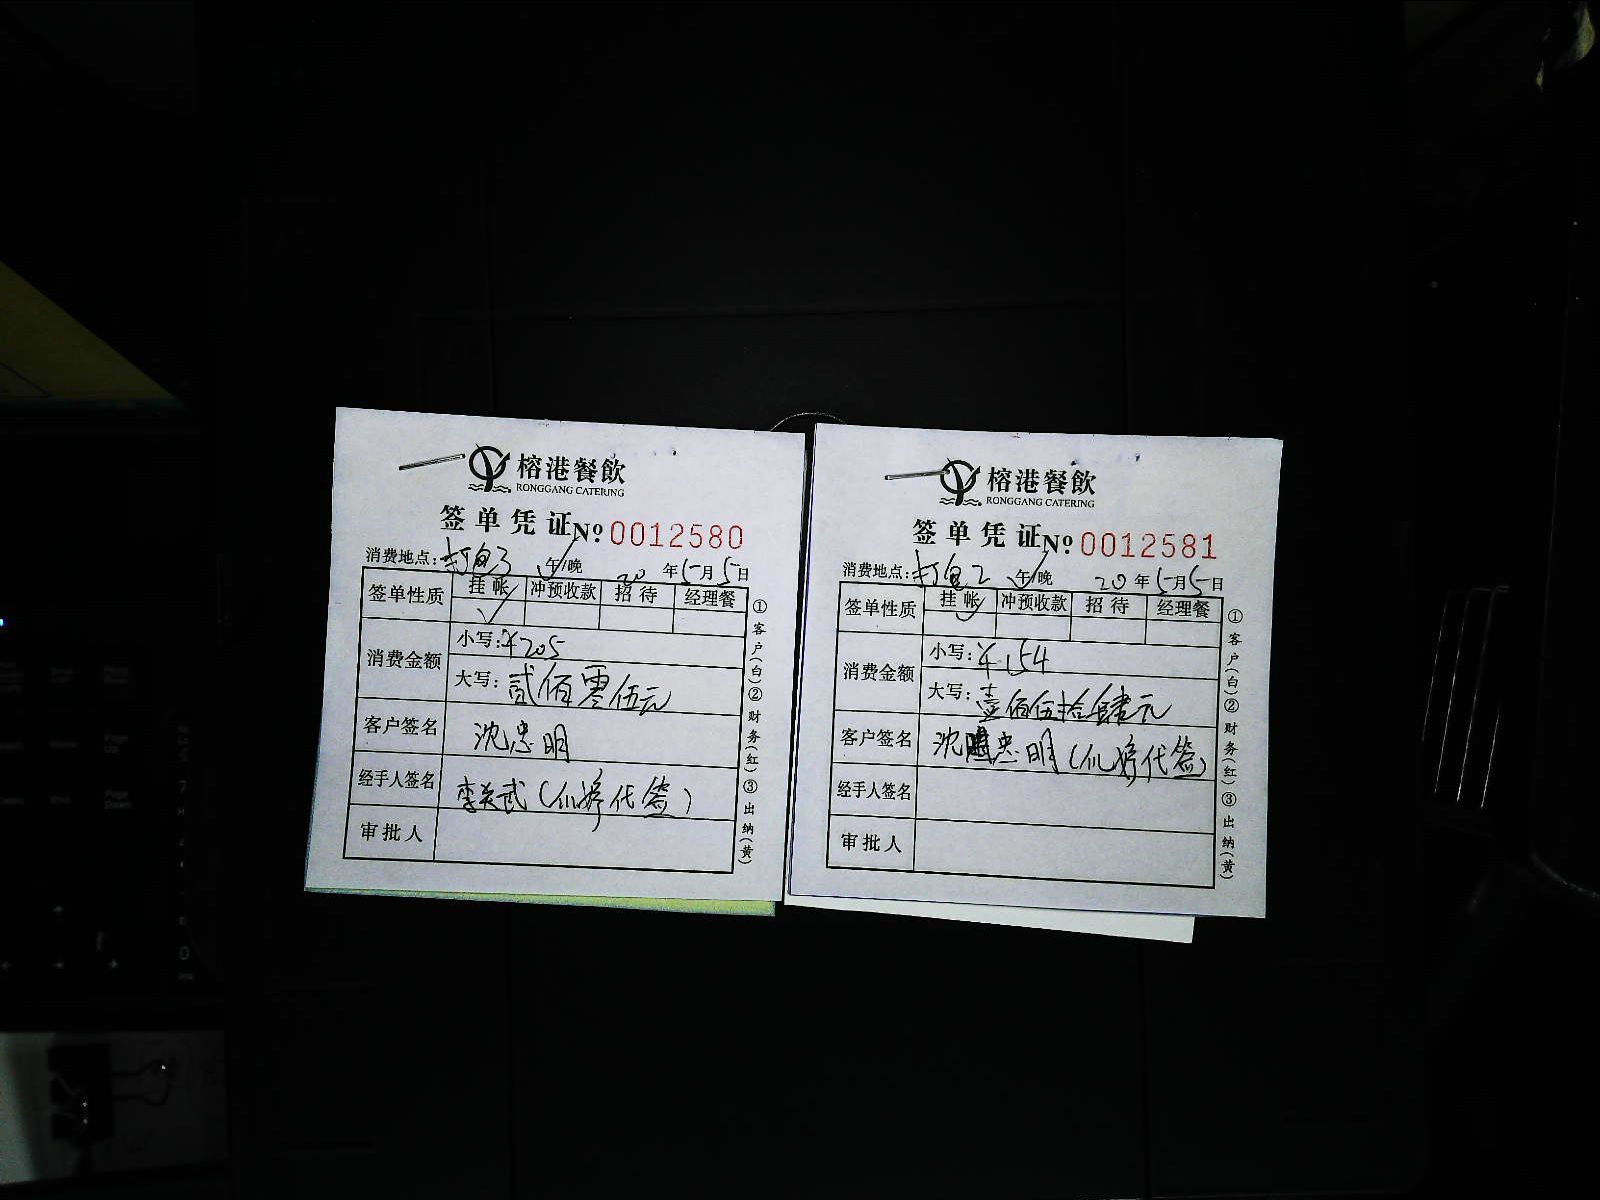 榕港餐飲
RONGGANG CATERING
签单凭证 Nº 0012580
消费地点: 打包3 午/晚 20 年 5月5日
签单性质 挂帐 冲预收款 招待 经理餐
消费金额
小写: ¥205
大写: 贰佰零伍元
客户签名 沈忠明
经手人签名 李关武(代签)
审批人
①客户(白)②财务(红)③出纳(黄)
榕港餐飲
RONGGANG CATERING
签单凭证 Nº 0012581
消费地点: 打包2 午/晚 20 年 5月5日
签单性质 挂帐 冲预收款 招待 经理餐
消费金额
小写: ¥154
大写: 壹佰伍拾肆元
客户签名 沈忠明(代签)
经手人签名
审批人
①客户(白)②财务(红)③出纳(黄)